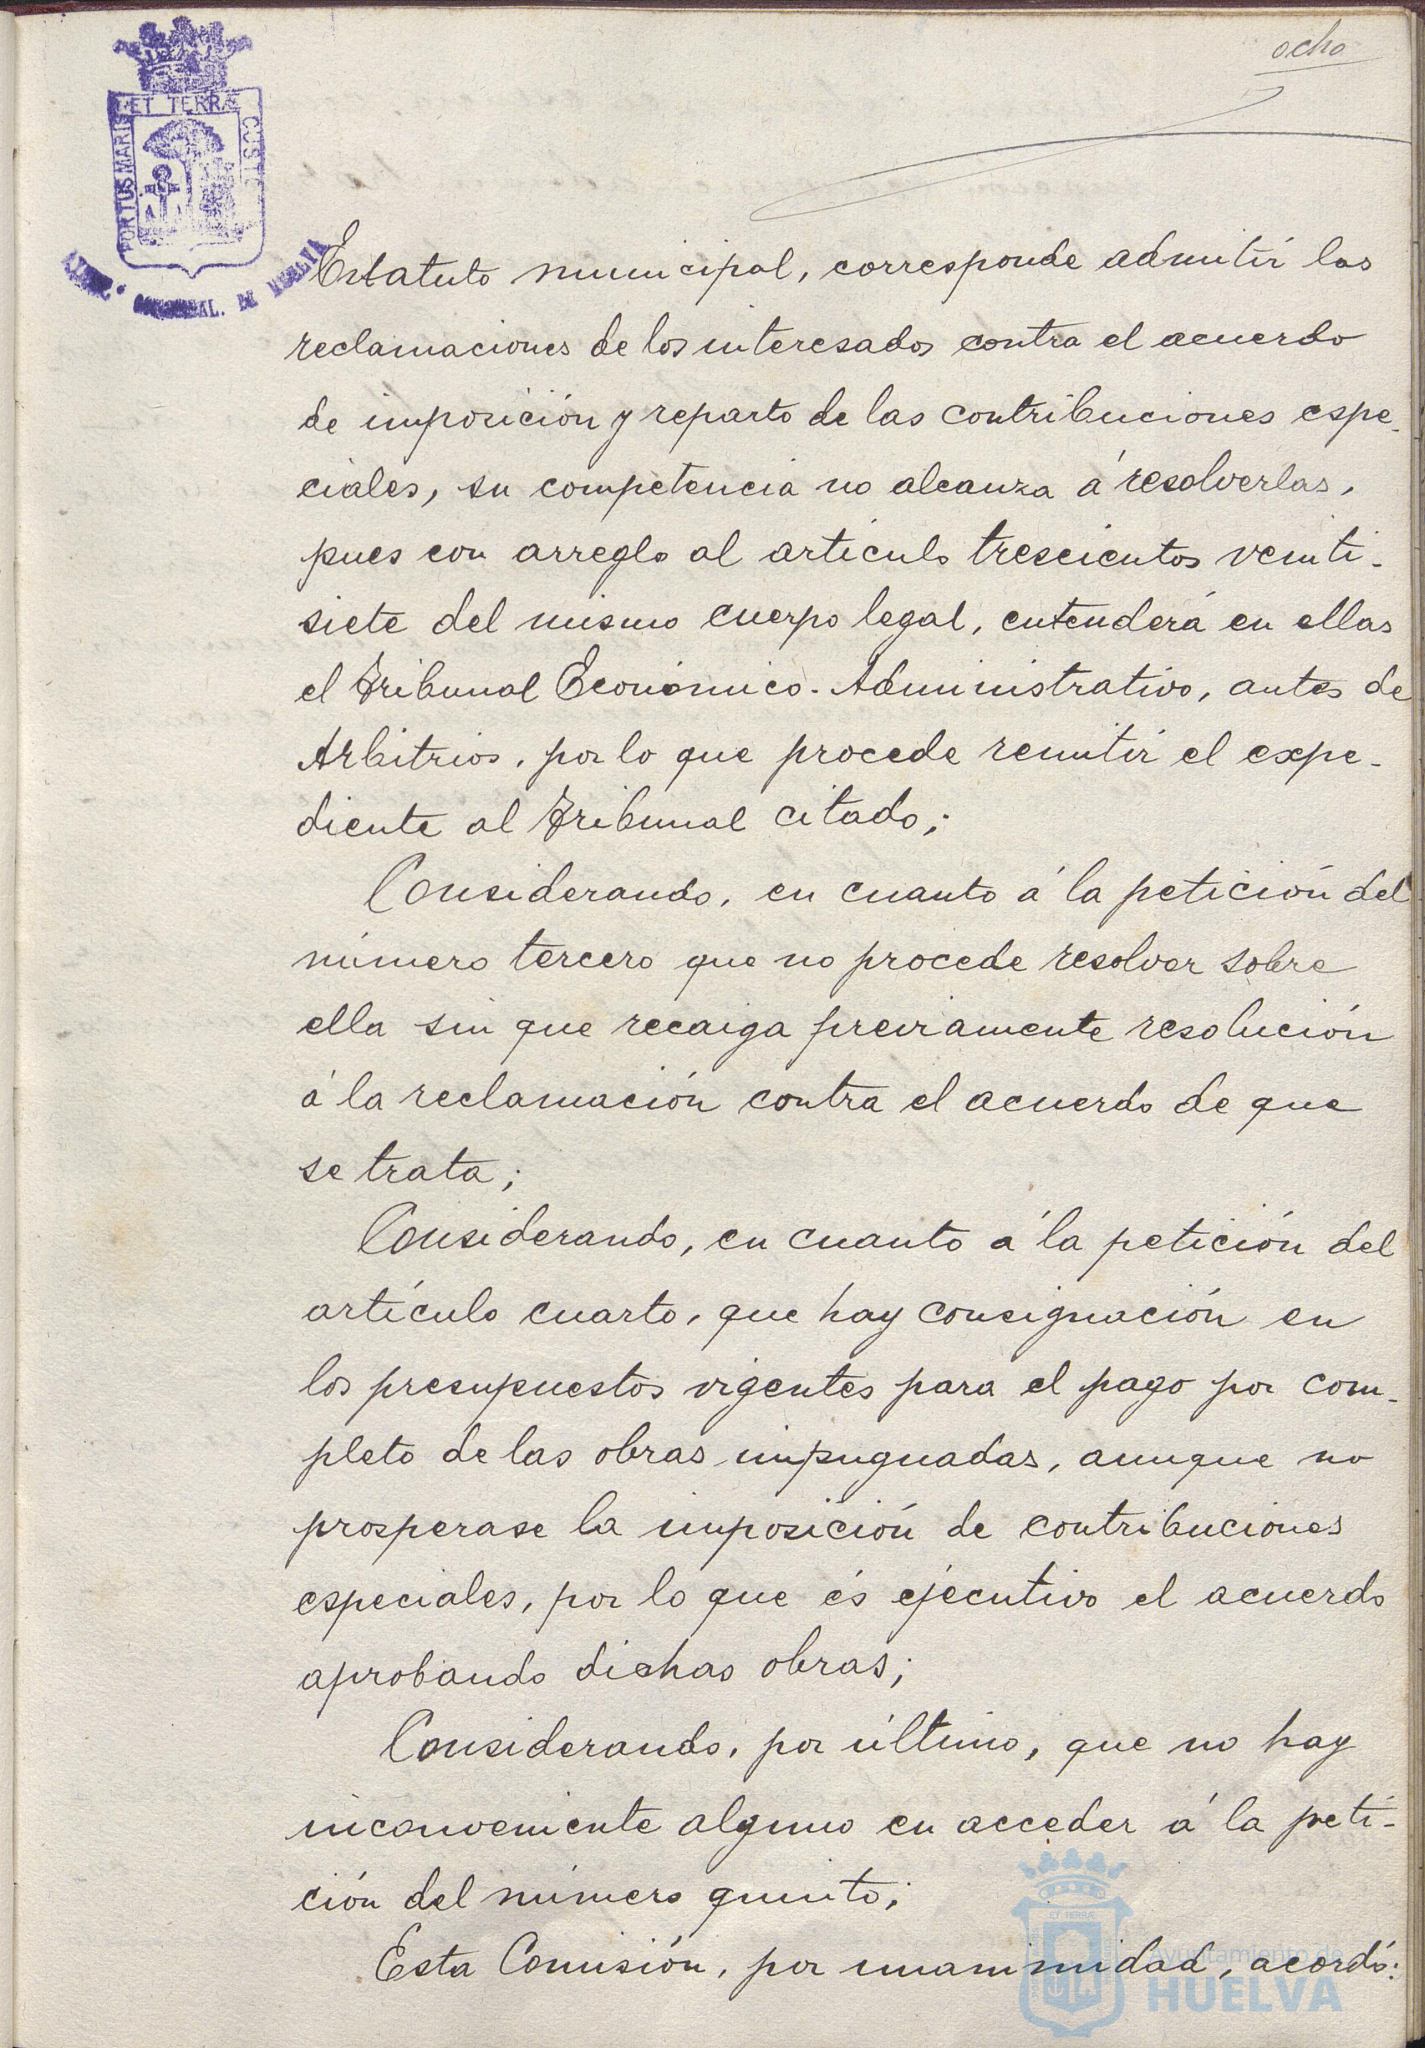 ocho
ET TERRÆ
PORTUS MARIS
CUSTO
DE HUELVA
Estatuto municipal, corresponde admitir las
reclamaciones de los interesados contra el acuerdo
de imposición y reparto de las contribuciones espe-
ciales, su competencia no alcanza á resolverlas,
pues con arreglo al artículo trescientos veinti-
siete del mismo cuerpo legal, entenderá en ellas
el Tribunal Económico-Administrativo, antes de
Arbitrios, por lo que procede remitir el expe-
diente al Tribunal citado;
Considerando, en cuanto á la petición del
número tercero que no procede resolver sobre
ella sin que recaiga previamente resolución
á la reclamación contra el acuerdo de que
se trata;
Considerando, en cuanto á la petición del
artículo cuarto, que hay consignación en
los presupuestos vigentes para el pago por com-
pleto de las obras impugnadas, aunque no
prosperase la imposición de contribuciones
especiales, por lo que és ejecutivo el acuerdo
aprobando dichas obras;
Considerando, por último, que no hay
inconveniente alguno en acceder á la peti-
ción del número quinto;
Esta Comisión, por unanimidad, acordó:
Ayuntamiento de
HUELVA